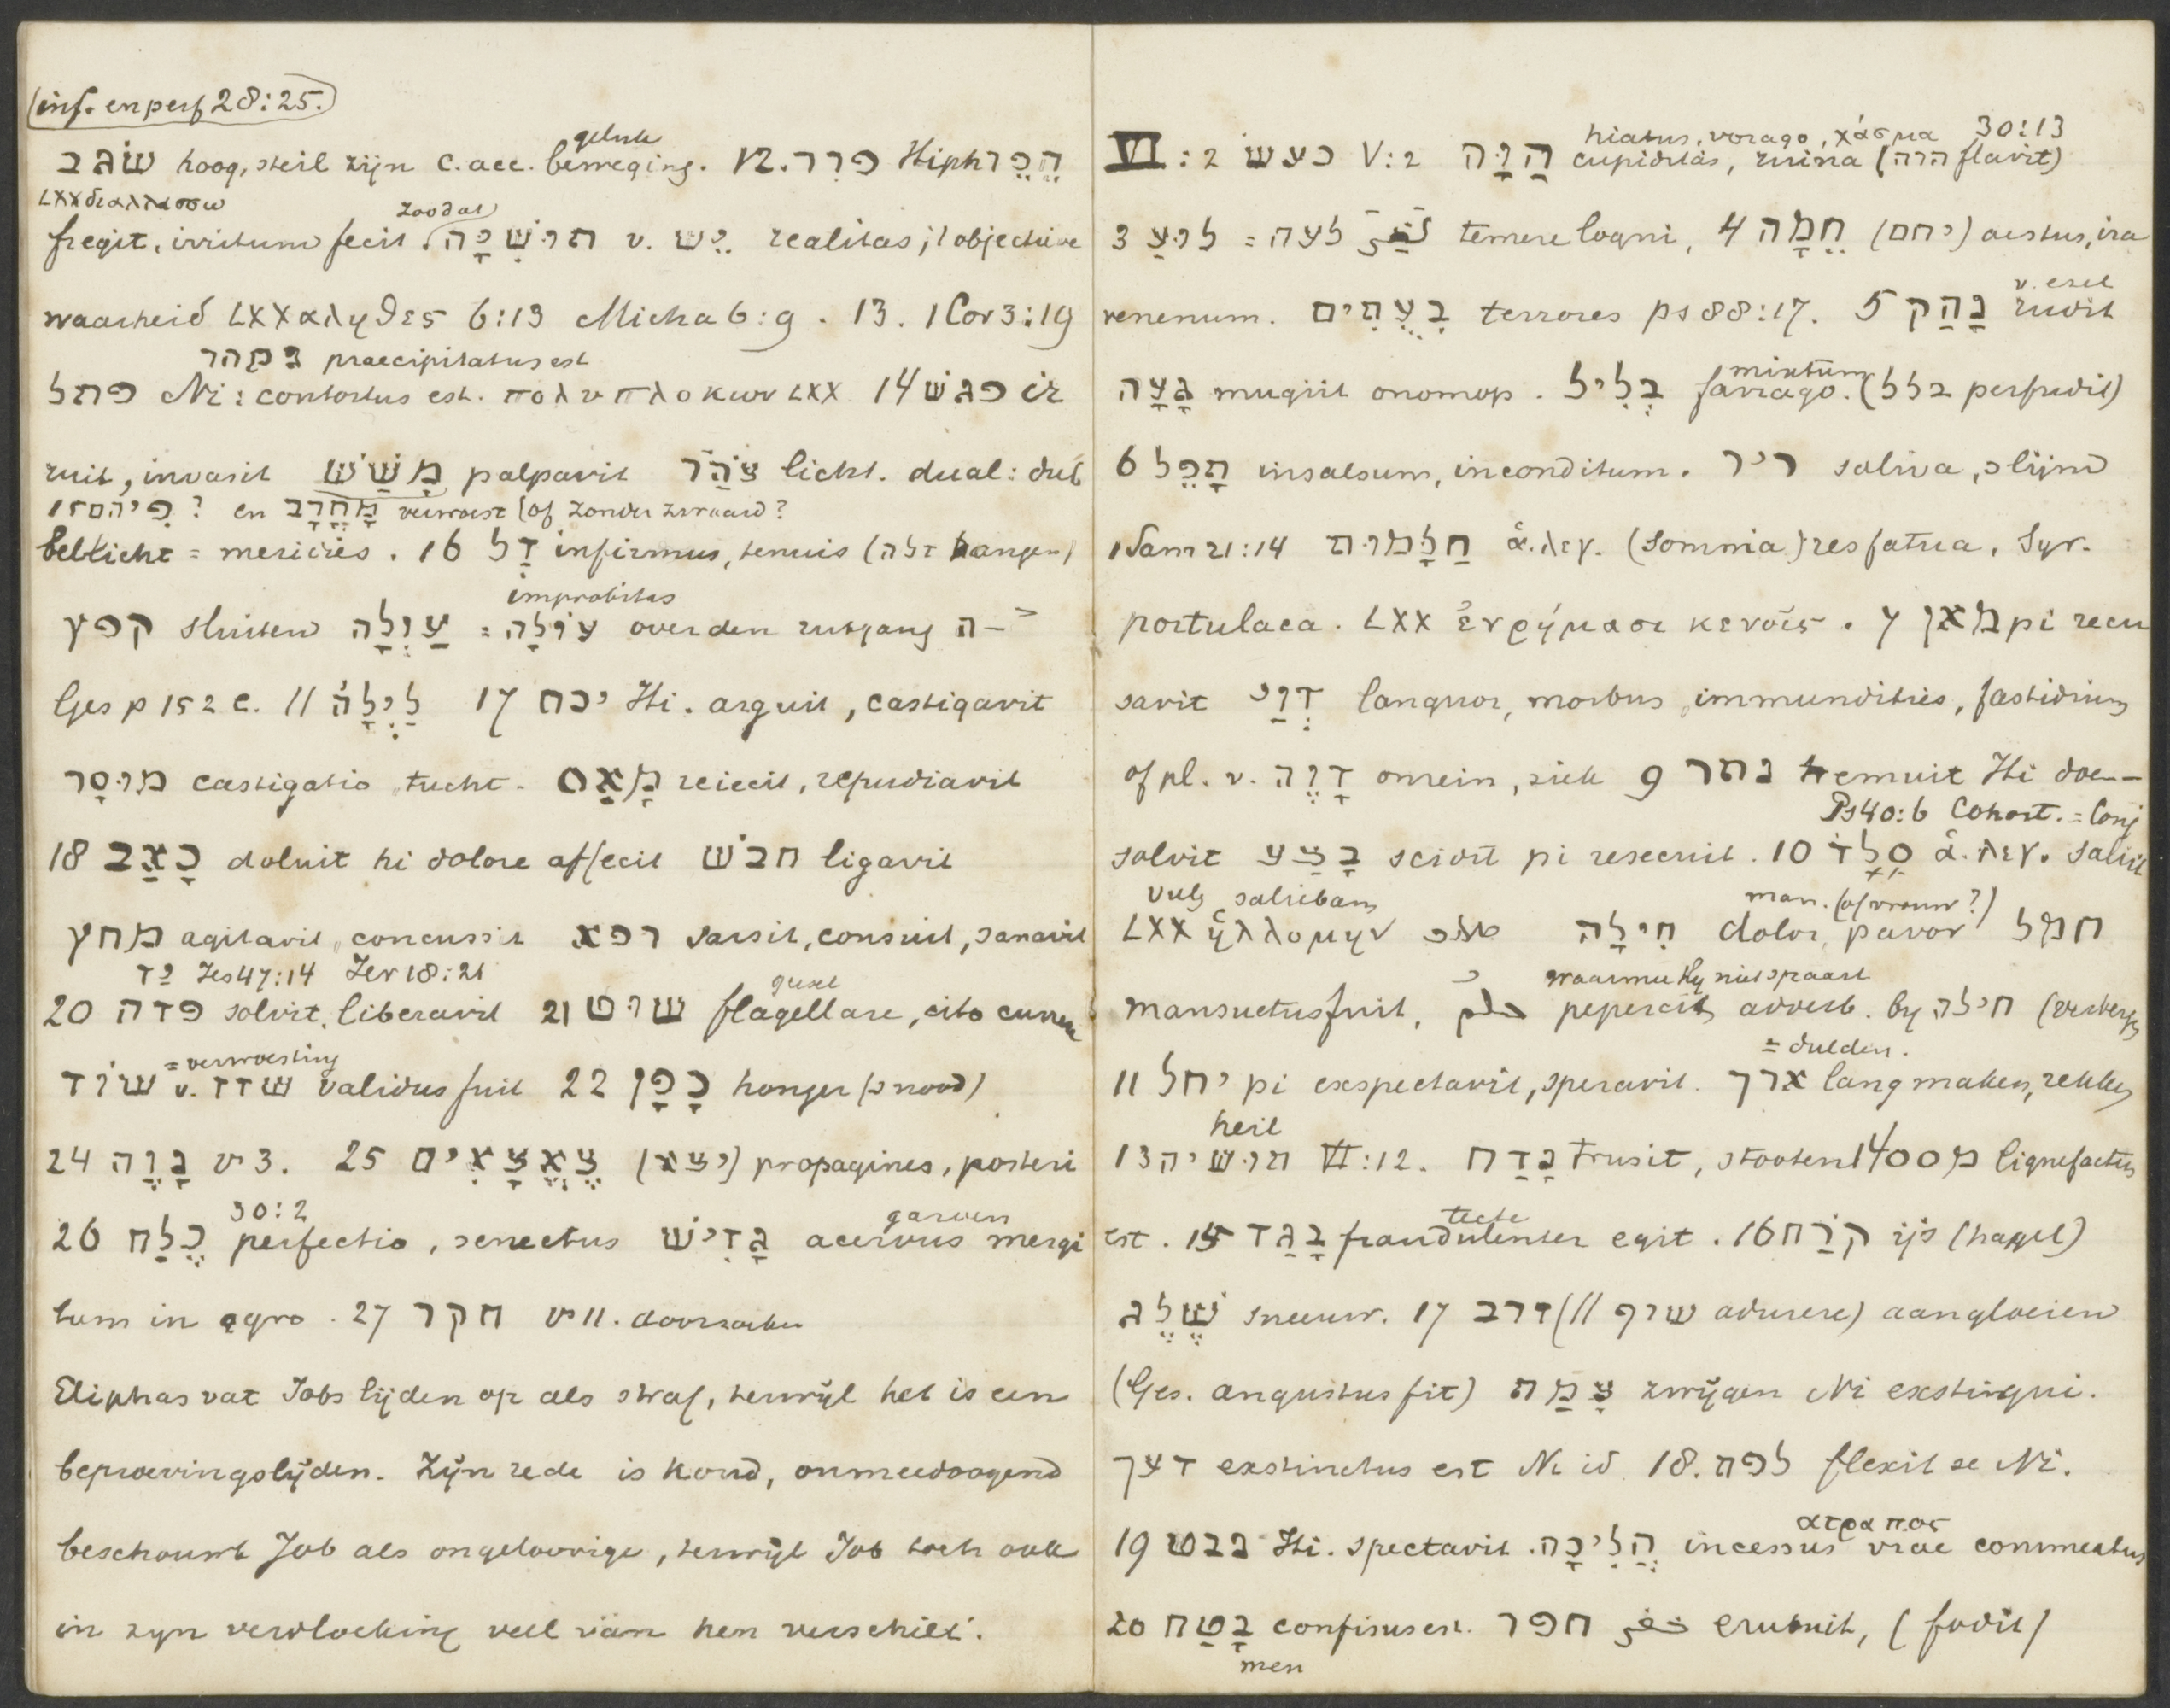 (inf. en perf 28:25.)
geluk
שׂגב hoog, steil zijn c. acc. beweging. 12. פרר Hiph הֵפֵר
LXX διαλλασσω
zoodat
fregit, irritum fecit. תּוּשִׁיָּה v. יֵשׁ realitas, 't objectieve
waarheid LXX αληθες 6:13 Micha 6:9. 13. 1 Cor 3:19
נמהר praecipitatus est
פתל Ni: contortus est. πολυπλοκων LXX 14 פגשׁ ir
ruit, invasit מָשַׁשׁ palpavit צֹהַר licht. dual: dub
15 פִּיהֶם? en מָחֳרָב verwoest (of zonder zwaard?
bellicht = meridies. 16 דַל infirmus, tenuis (דלה hangen)
improbitas
קפץ sluiten עַוְלָה = עֹלָה over den uitgang ־ה
Ges p 152 c. 11 לַיְלָה 17 יכח Hi. arguit, castigavit
מוּסָר castigatio, tucht. מָאַס reiecit, repudiavit
18 כָּאַב doluit hi dolore affecit חבשׁ ligavit
מחץ agitavit, concussit רפא sarsit, consuit, sanavit
יד Jes 47:14 Jer 18:21
20 פדה solvit, liberavit 21 שׁוּט flagellare, cito currere
gesel
= verwoesting
שׁוֹד v. שׁדד validus fuit 22 כָּפָן honger(snood)
24 נָוֶה vs 3. 25 צֶאֱצָאִים (יצא) propagines, posteri
30:2
garven
26 כֶּלַח perfectio, senectus גָּדִישׁ acervus mergi
tum in agro. 27 חקר vs 11. doorzoeken
Eliphas vat Jobs lijden op als straf, terwijl het is een
beproevingslijden. Zijn rede is koud, onmeedoogend
beschouwt Job als ongeloovige, terwijl Job toch ook
in zyn verdocking veel van hen verschilt.
hiatus, vorago, χάσμα 30:13
VI: 2 כעשׂ V:2 הַוָּה cupiditas, ruina (הוה flavit)
3 לוּעַ = לעה temere loqui, 4 חֵמָה (יחם) aestus, ira
v. ezel
venenum. בִּעֻתִים terrores ps 88:17. 5 נָהַק rudit
mixtum
גָּעָה mugiit onomop. בְּלִיל farrago. (בלל perfudit)
6 תָּפֵל insalsum, inconditum. ריר saliva, slijm
1 Sam 21:14 חַלָּמוּת ἁ.λεγ. (somnia) res fatua. Syr.
portulaca. LXX ἐν ῥήμασι κενοῖς. 7 מאן pi recu
savit דְּוַי languor, morbus, immundities, fastidium
of pl. v. דָּוֶה onrein, ziek 9 נתר tremuit Hi doe-
Ps 40:6 Cohort. = Conj
solvit בָּצַע scidit pi resecuit. 10 סָלַד ἁ.λεγ. saliit
Vulg saliebam
man. (of vrouw?)
LXX ἡλλομην חִילָה dolor, pavor חמל
waarmee hij niet spaart
mansuetus fuit, حلم pepercit adverb. by חילה (versterkt
= dulden.
11 יחל pi exspectavit, speravit. ארך lang maken, rekken
heil
13 תּוּשִׁיה VI:12. נָדַח trusit, stooten 14 מסס liquefactus
tecte
est. 15 בָּגַד fraudulenter egit. 16 קֶרַח ijs (hagel)
שֶׁלֶג sneeuw. 17 זרב (// שׂרף adurere) aangloeien
(Ges. angustus fit) צָמַת zwijgen Ni exstingui.
דעך exstinctus est Ni id 18. לפת flexit se Ni.
ατραπος
19 נבט Hi. spectavit. הֲלִיכָה incessus viae commeatus
20 בָּטַח confisus est. חפר خفر erubuit, (fodit)
men